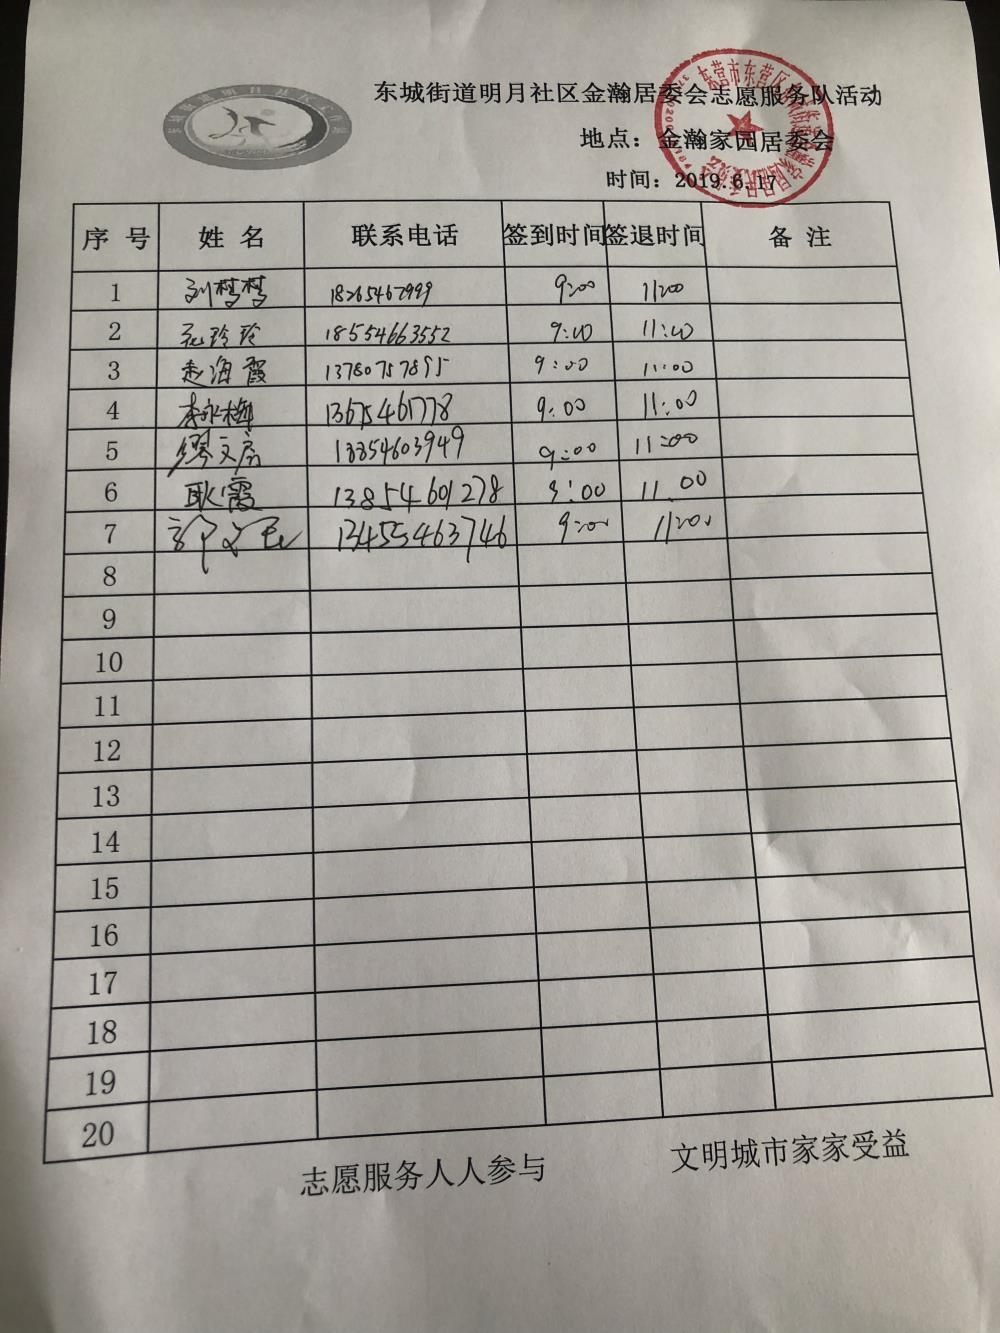 东城街道明月社区金瀚居委会志愿服务队活动
地点：金瀚家园居委会
时间：2019.6.17
序号 姓名 联系电话 签到时间 签退时间 备注
1 刘梦梦 18265467999 9:00 11:00
2 玲玲 18554663552 9:00 11:00
3 赵海霞 13780757895 9:00 11:00
4 李永梅 13675461778 9:00 11:00
5 缪文房 13854603949 9:00 11:00
6 耿霞 13854601278 9:00 11:00
7 郭文 13455463746 9:00 11:00
8
9
10
11
12
13
14
15
16
17
18
19
20
志愿服务人人参与 文明城市家家受益